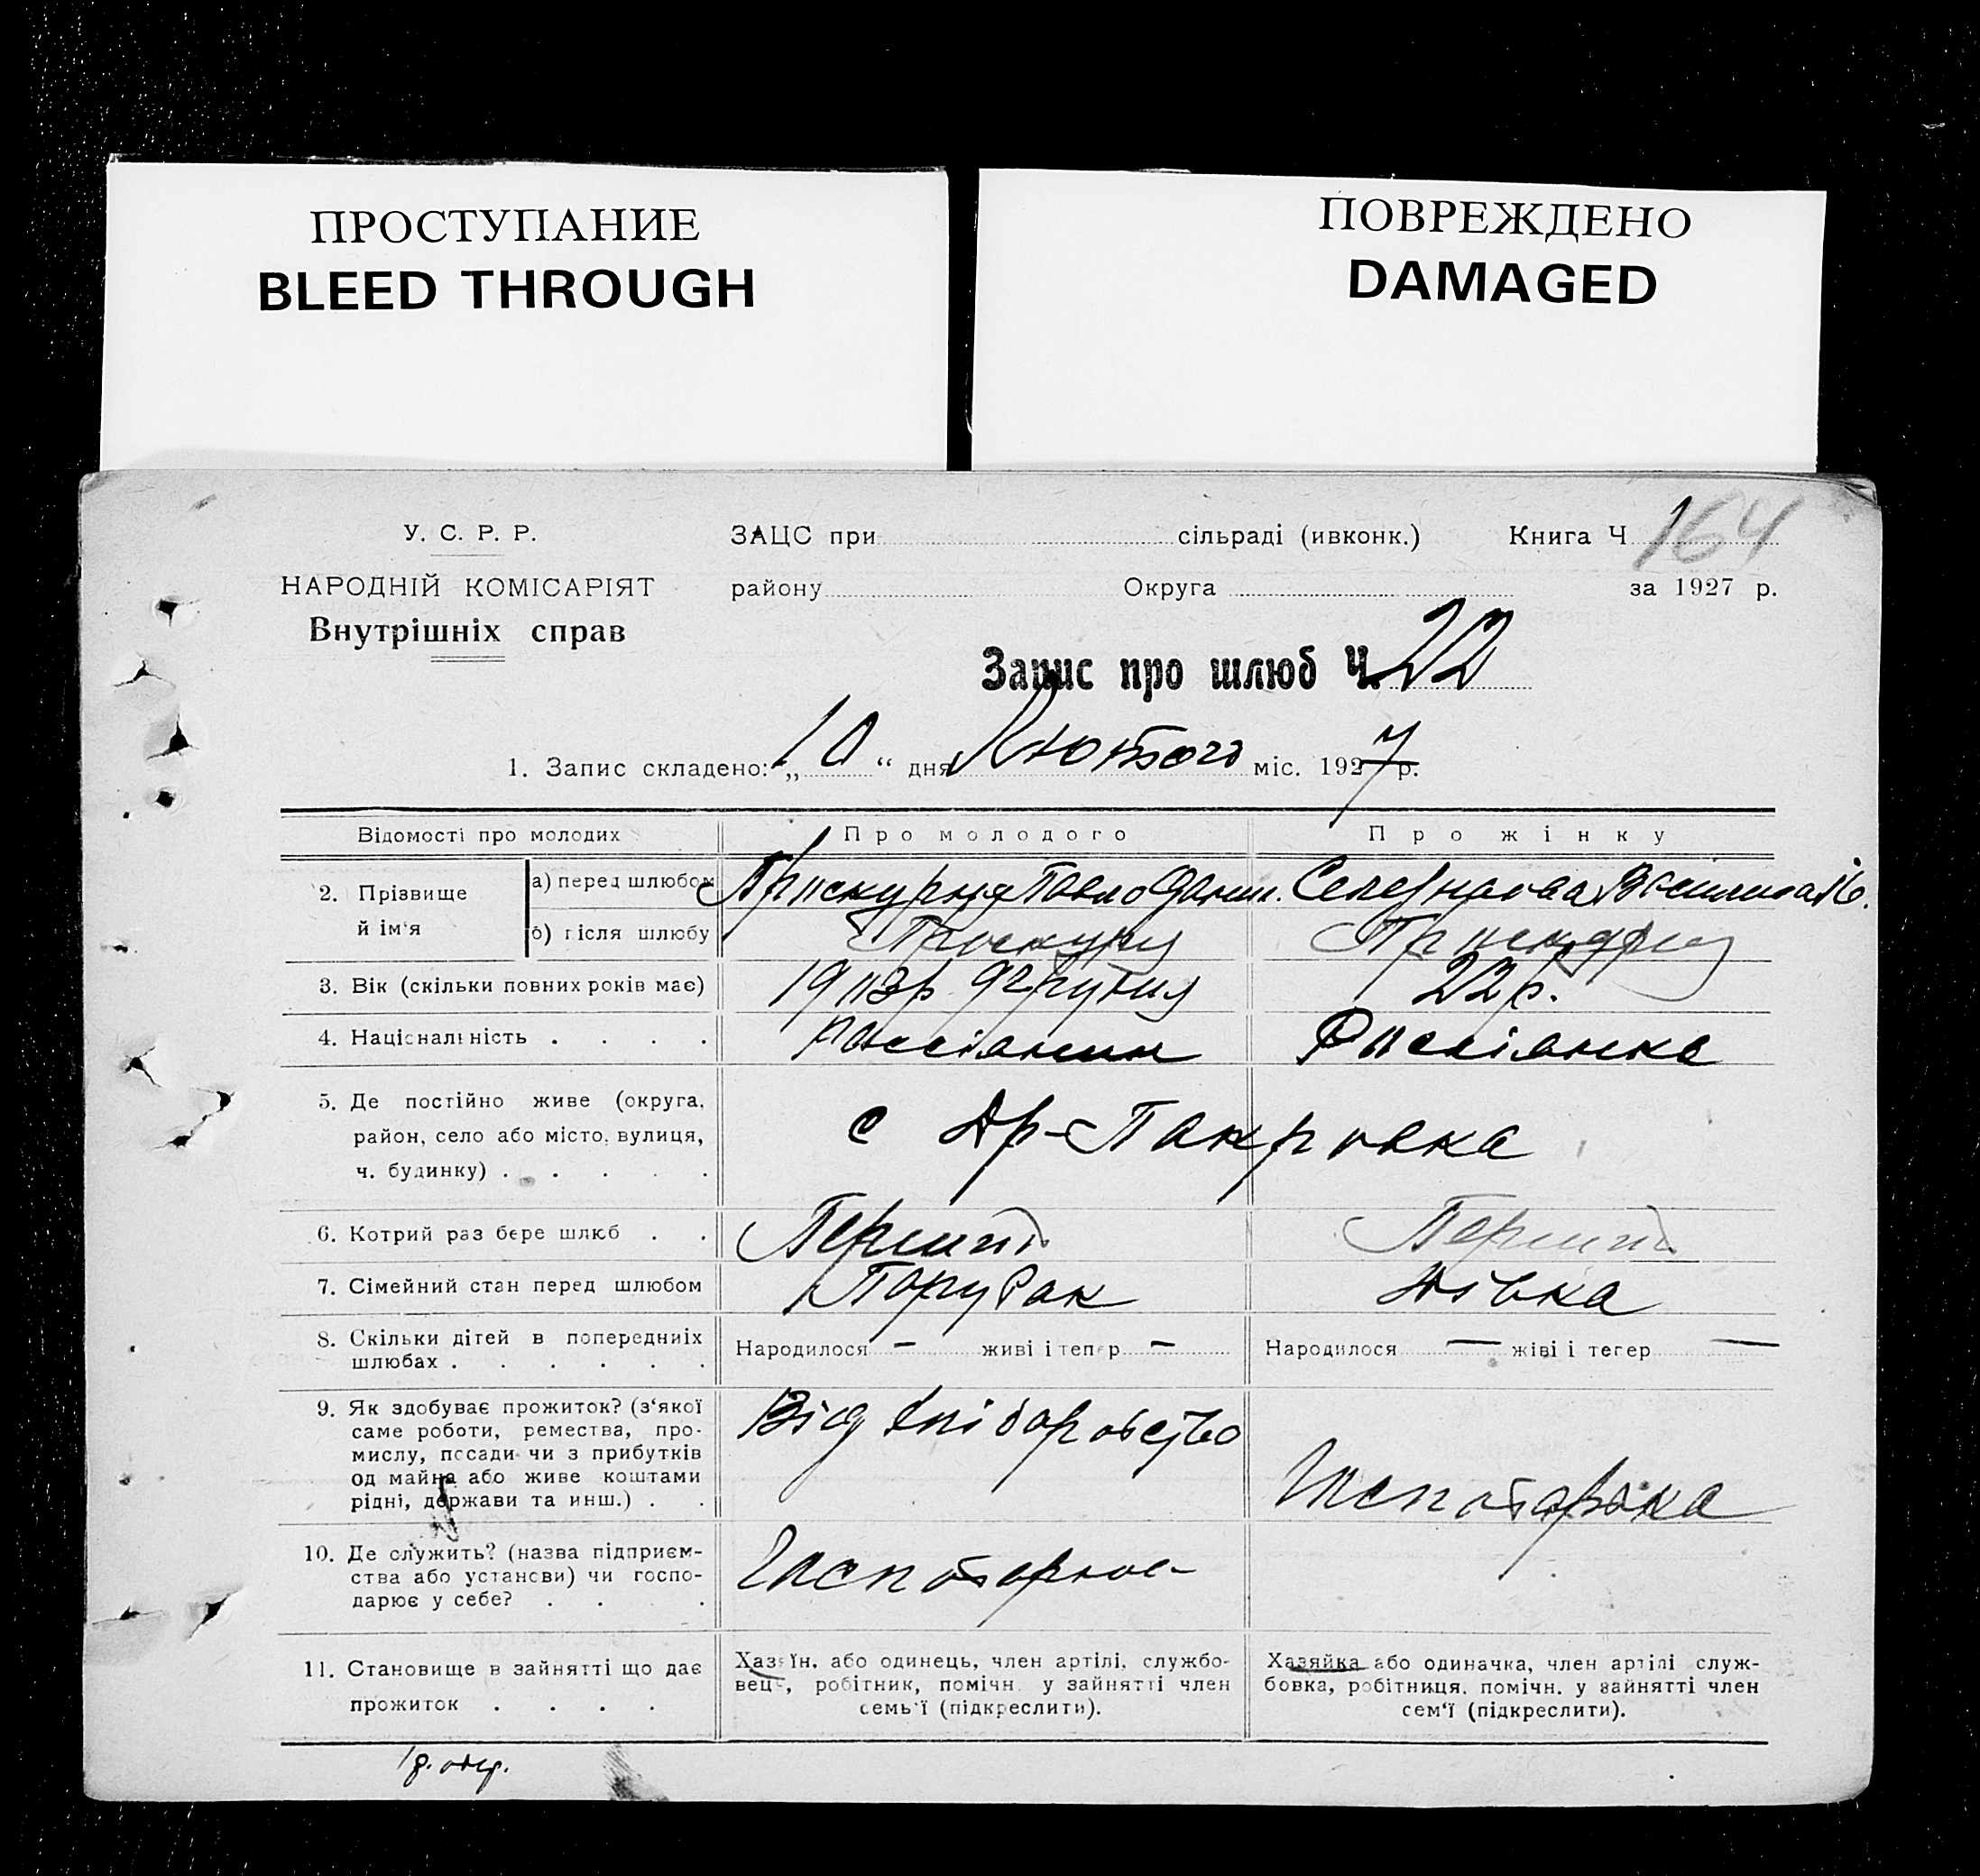 ПРОСТУПАНИЕ
BLEED THROUGH
ПОВРЕЖДЕНО
DAMAGED
У. С. Р. Р.
ЗАЦС при сільраді (ивконк.) Книга Ч 164
НАРОДНІЙ КОМІСАРІЯТ
району Округа за 1927 р.
Внутрішніх справ
Запис про шлюб Ч. 22
1. Запис складено: „10“ дня Лютого міс. 1927 р.
Відомості про молодих
Про молодого
Про жінку
2. Прізвище й ім'я
а) перед шлюбом
Павло
б) після шлюбу
3. Вік (скільки повних років має)
19
22 р.
4. Національність . . . .
Рассіянин
Рассіянка
5. Де постійно живе (округа,
район, село або місто, вулиця,
ч. будинку) . . . . .
с Ар-Пакровка
6. Котрий раз бере шлюб . .
Перший
Перший
7. Сімейний стан перед шлюбом
Парубак
Дівка
8. Скільки дітей в попередниіх
шлюбах . . . . . .
Народилося – живі і тепер –
Народилося — жіві і тепер —
9. Як здобуває прожиток? (з'якої
саме роботи, ремества, про-
мислу, посади чи з прибутків
од майна або живе коштами
рідні, держави та инш.) . .
Від хліборобство
Гаспатарка
10. Де служить? (назва підприєм-
ства або установи) чи госпо-
дарює у себе? . . . .
Гаспатарює
11. Становище в зайнятті що дає
прожиток . . . .
Хазяїн, або одинець, член артілі, службо-
вець, робітник, помічн. у зайнятті член
семь'ї (підкреслити).
Хазяйка або одиначка, член артілі служ-
бовка, робітниця, помічн. у зайнятті член
сем'ї (підкреслити).